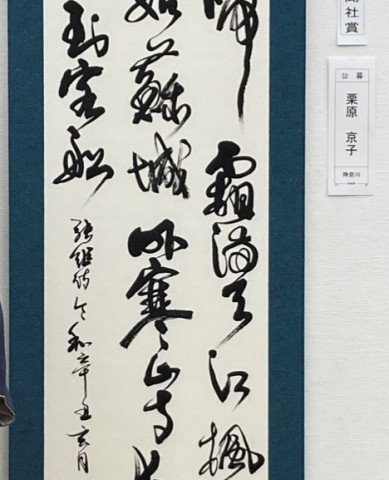 啼霜満天江楓
姑蘇城外寒山寺
到客船
張継詩令和辛丑玄月
社賞
公募
栗原 京子
神奈川